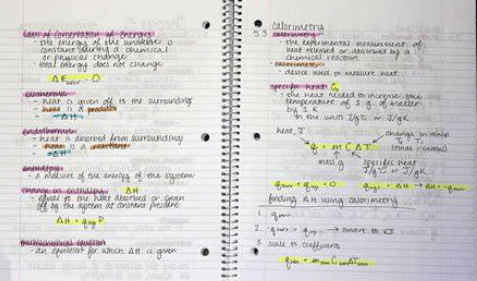 Law of Conservation of Energy
- the energy of the universe is
constant during a chemical
or physical change
- total energy does not change
ΔE = 0
exothermic
- heat is given off to the surroundings
- heat is a product
- ΔH
endothermic
- heat is absorbed from surroundings
- heat is a reactant
+ΔH
enthalpy
- a measure of the energy of the system
change in enthalpy ΔH
- equal to the heat absorbed or given
off by the system at constant pressure
ΔH = q P
thermochemical equation
- an equation for which ΔH is given
calorimetry
5.3 calorimetry
- the experimental measurement of
heat released or absorbed by a
chemical reaction
- calorimeter
- device used to measure heat
specific heat C
- the heat needed to increase the
temperature of 1 g of matter
by 1 K
in the unit J/g°C or J/gK
heat, J
change in temp
q = m C ΔT
mass, g
specific heat
J/g°C or J/gK
finding ΔH using calorimetry
1.
2. → convert to KJ
3. scale to coefficients